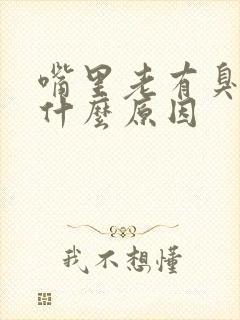 嘴里老有臭
什麼原因
我不想懂